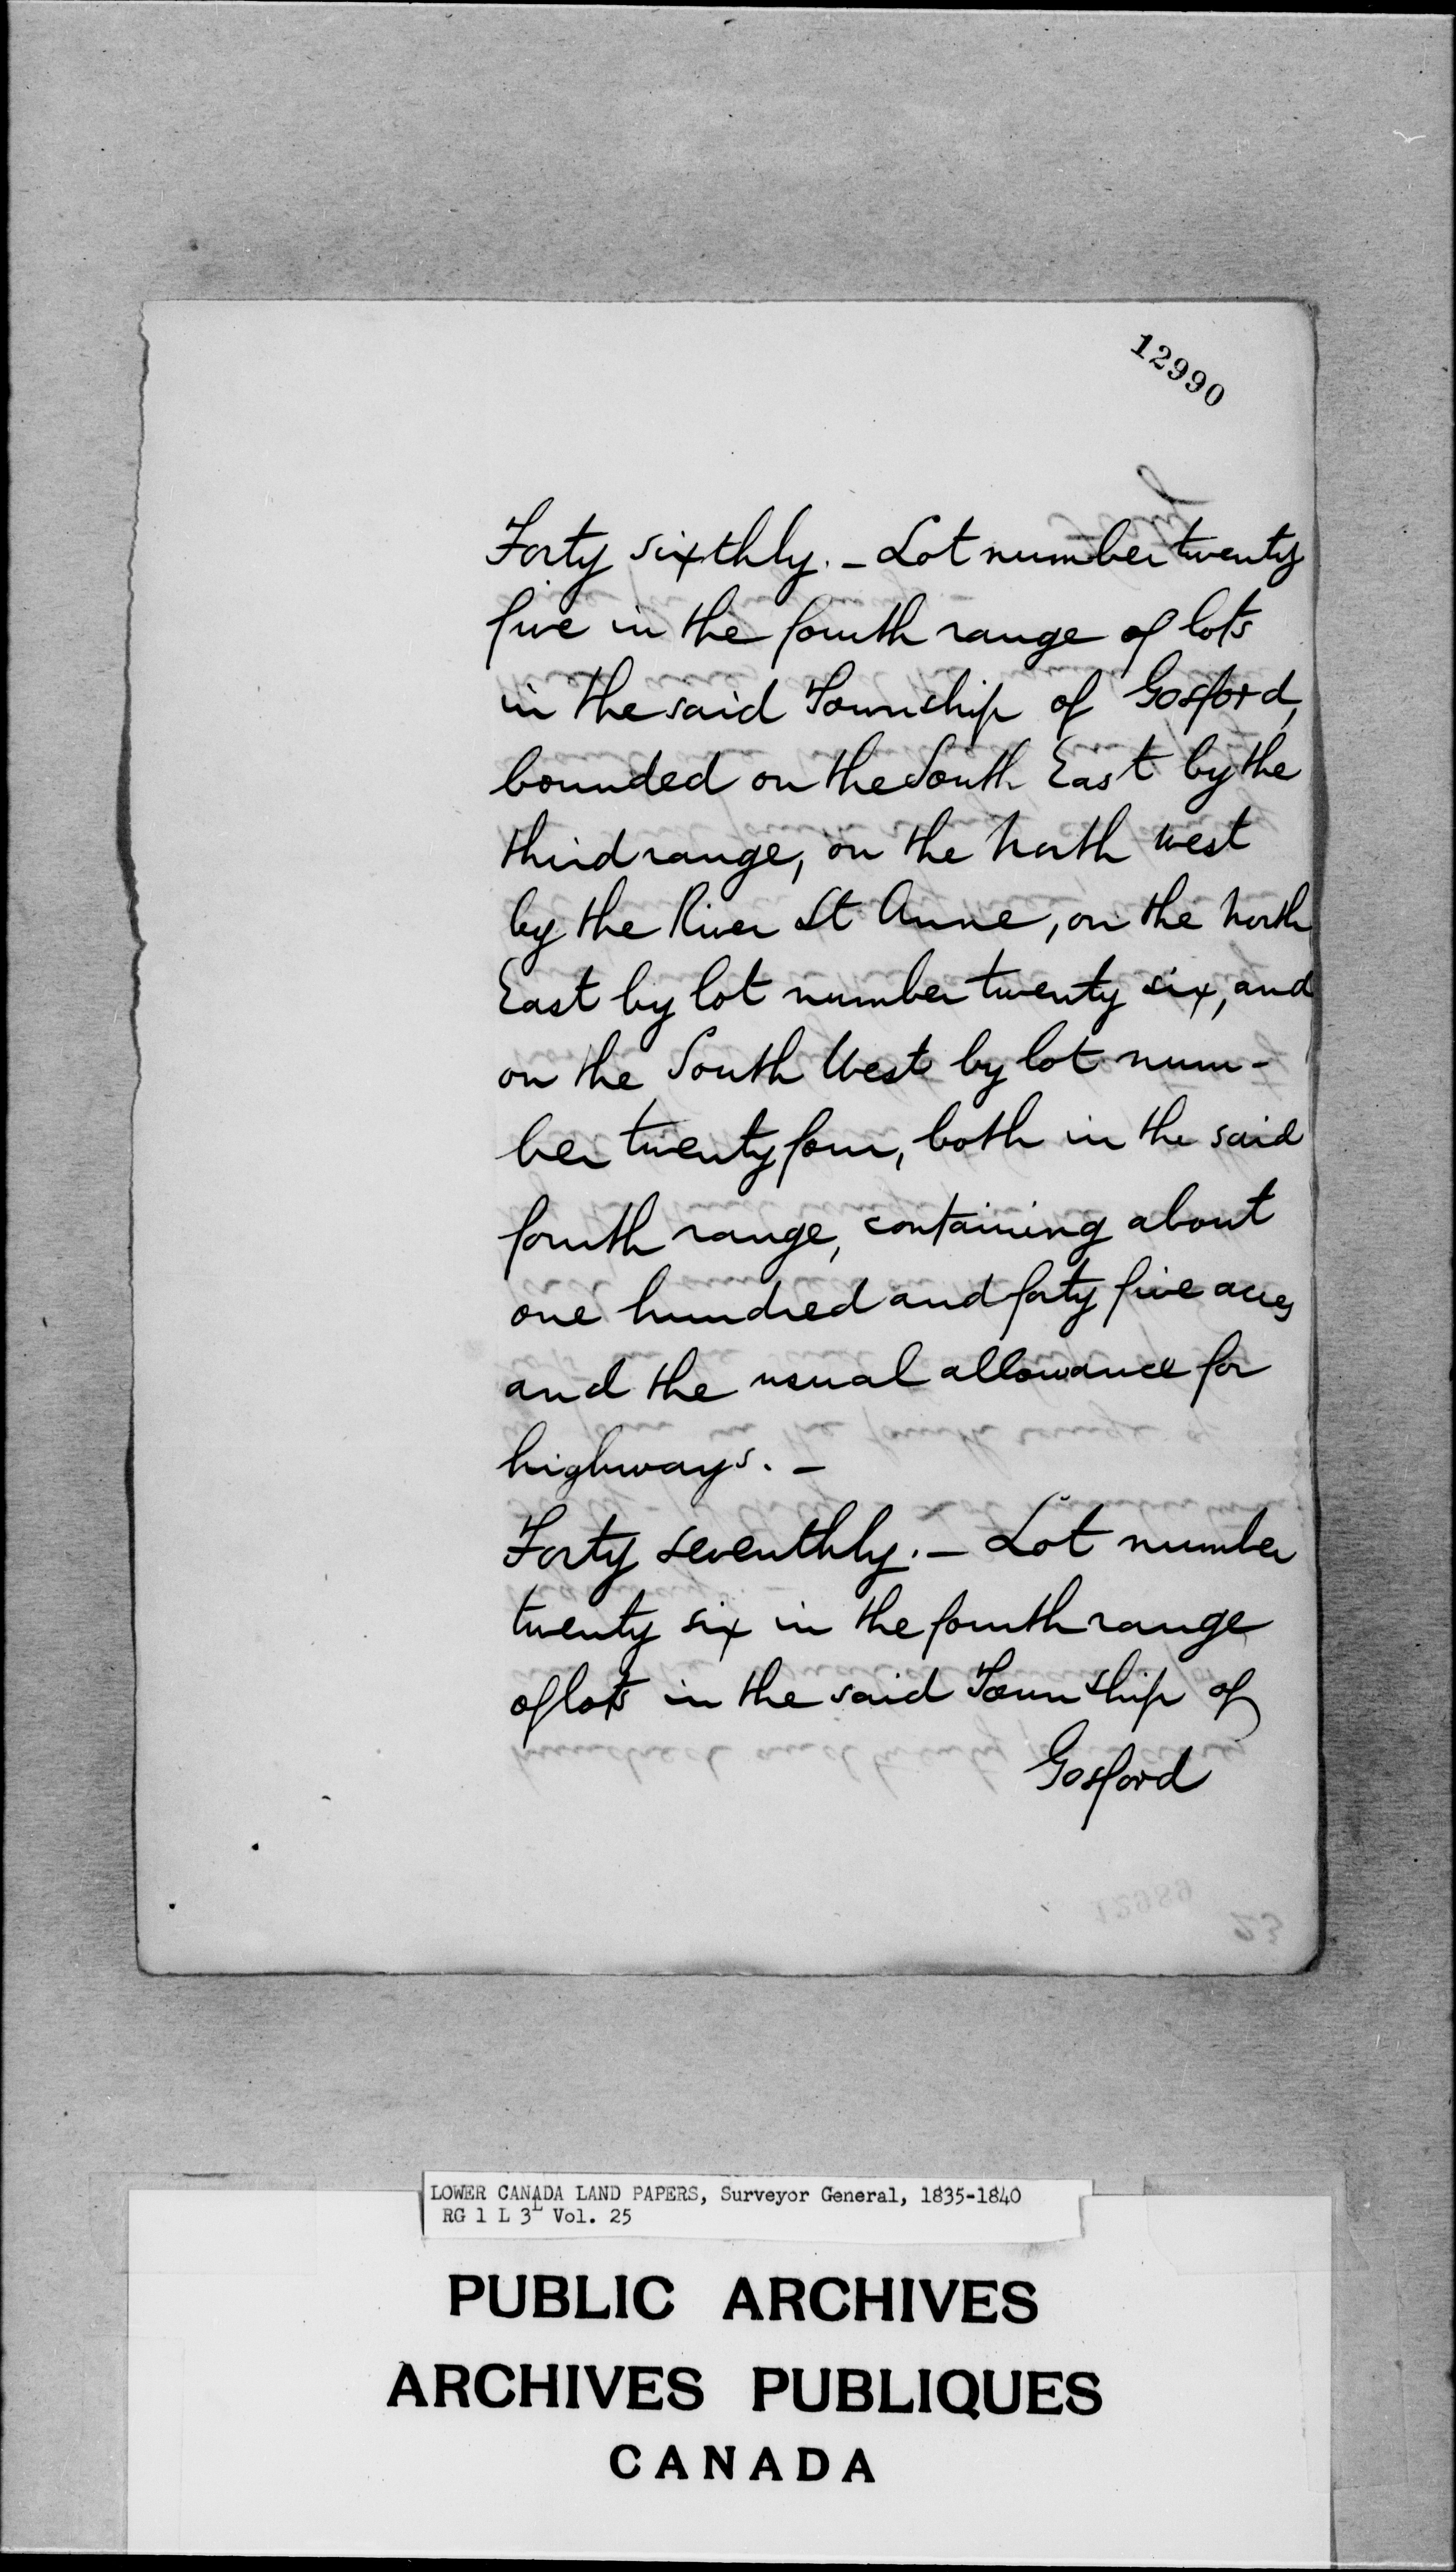 12990
Forty sixthly. - Lot number twenty
five in the fourth range of lots
in the said Township of Gosford,
bounded on the South East by the
third range, on the North west
by the River St Anne, on the North
East by lot number twenty six, and
on the South West by lot num-
ber twenty four, both in the said
fourth range, containing about
one hundred and forty five acres
and the usual allowance for
highways. -
Forty seventhly. - Lot number
twenty six in the fourth range
of lots in the said Township of
Gosford
12989
23
LOWER CANADA LAND PAPERS, Surveyor General, 1835-1840
RG 1 L 3L Vol. 25
PUBLIC ARCHIVES
ARCHIVES PUBLIQUES
CANADA